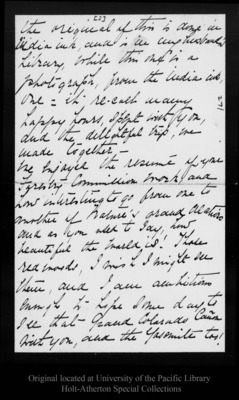 [2]
the original of this is done in
India ink, and is in
Library, while this one is a
photograph, from the India ink
one = It re-calls many
happy hours, spent with you,
and the delightful trip, we
made together—
We enjoyed the resumé of your
Forestry Commission work, and
how interesting to go from one to
another of Nature's grand
and as you used to say, how
beautiful the world is! Those
redwoods, I wish I might see
them, and I am ambitious
enough to hope some day to
see that Grand Colorado Cañon
with you, and the Yosemite too!
Original located at University of the Pacific Library
Holt-Atherton Special Collections